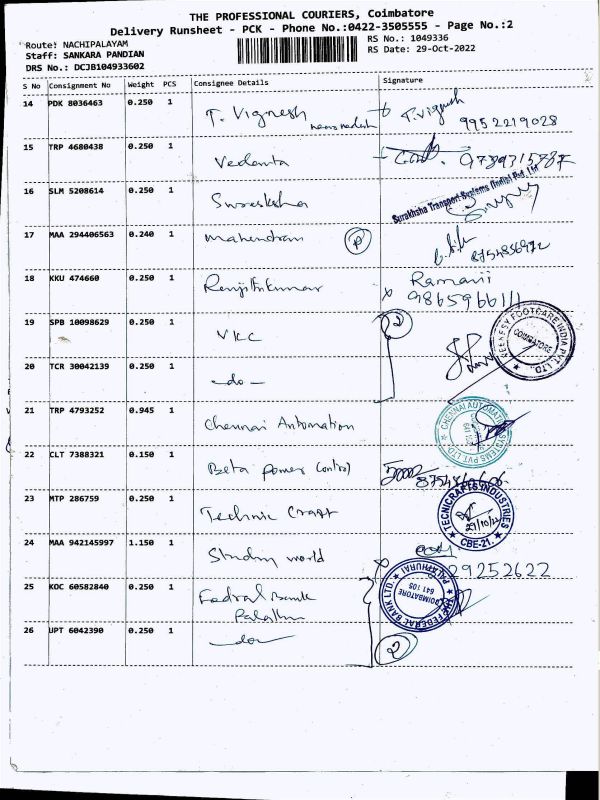 THE PROFESSIONAL COURIERS, Coimbatore
Delivery Runsheet - PCK - Phone No.:0422-3505555 - Page No.:2
Route: NACHIPALAYAM
RS No.: 1049336
Staff: SANKARA PANDIAN
RS Date: 29-Oct-2022
DRS No.: DCJB104933602
S No Consignment No Weight PCS Consignee Details Signature
14 PDK 8036463 0.250 1 T. Vignesh T. Vignesh
9952219028
15 TRP 4680438 0.250 1 Vedanta
16 SLM 5208614 0.250 1
Surakhsha Transport Systems (India) Pvt. Ltd
17 MAA 294406563 0.240 1 Mahendran P
18 KKU 474660 0.250 1 Renjithkumar Ramani
19 SPB 10098629 0.250 1 VKC 2
VEEKESY FOOTCARE INDIA PVT. LTD.,
COIMBATORE
20 TCR 30042139 0.250 1 -do-
21 TRP 4793252 0.945 1 Chennai Automation
CHENNAI AUTOMATION SYSTEMS PVT. LTD.
22 CLT 7388321 0.150 1 Beta power Control
23 MTP 286759 0.250 1 Technic Craft
TECNICRAFTS INDUSTRIES
29/10/22
CBE-21
24 MAA 942145997 1.150 1 world
29252622
25 KOC 60582840 0.250 1 Fedral Bank
THE FEDERAL BANK LTD.
PALATHURAI
COIMBATORE
641 105
26 UPT 6042390 0.250 1 -do-
2